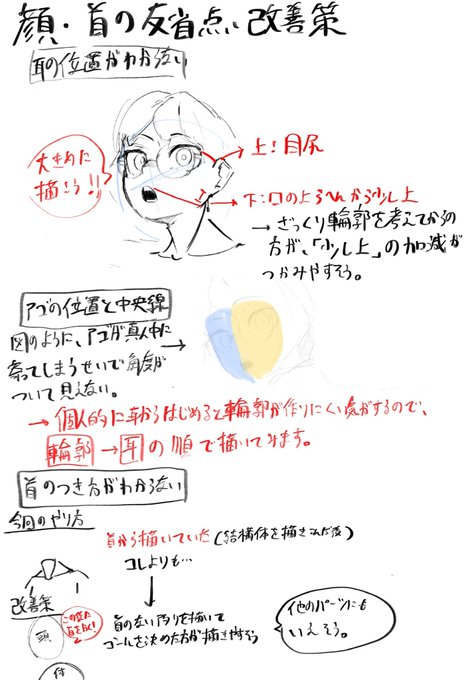 顔・首の反省点、改善策
耳の位置がわからない
大きめに
描こう!!
→上!目尻
→下:口のよこらへんから少し上
→ざっくり輪郭を考えてからの
方が、「少し上」の加減が
つかみやすそう。
アゴの位置と中央線
図のように、アゴが真ん中に
寄ってしまうせいで角度が
ついて見えない。
→個人的に耳からはじめると輪郭が作りにくい気がするので、
輪郭→耳の順で描いてみます。
首のつき方がわからない
今回のやり方
首から描いていた(結構体を描きこんだ後)
コレよりも…
改善策
頭
この後に
首を描く!
首のない
アタリを描いて
ゴールを決めた方が描きやすそう
他のパーツにも
いえそう。
体